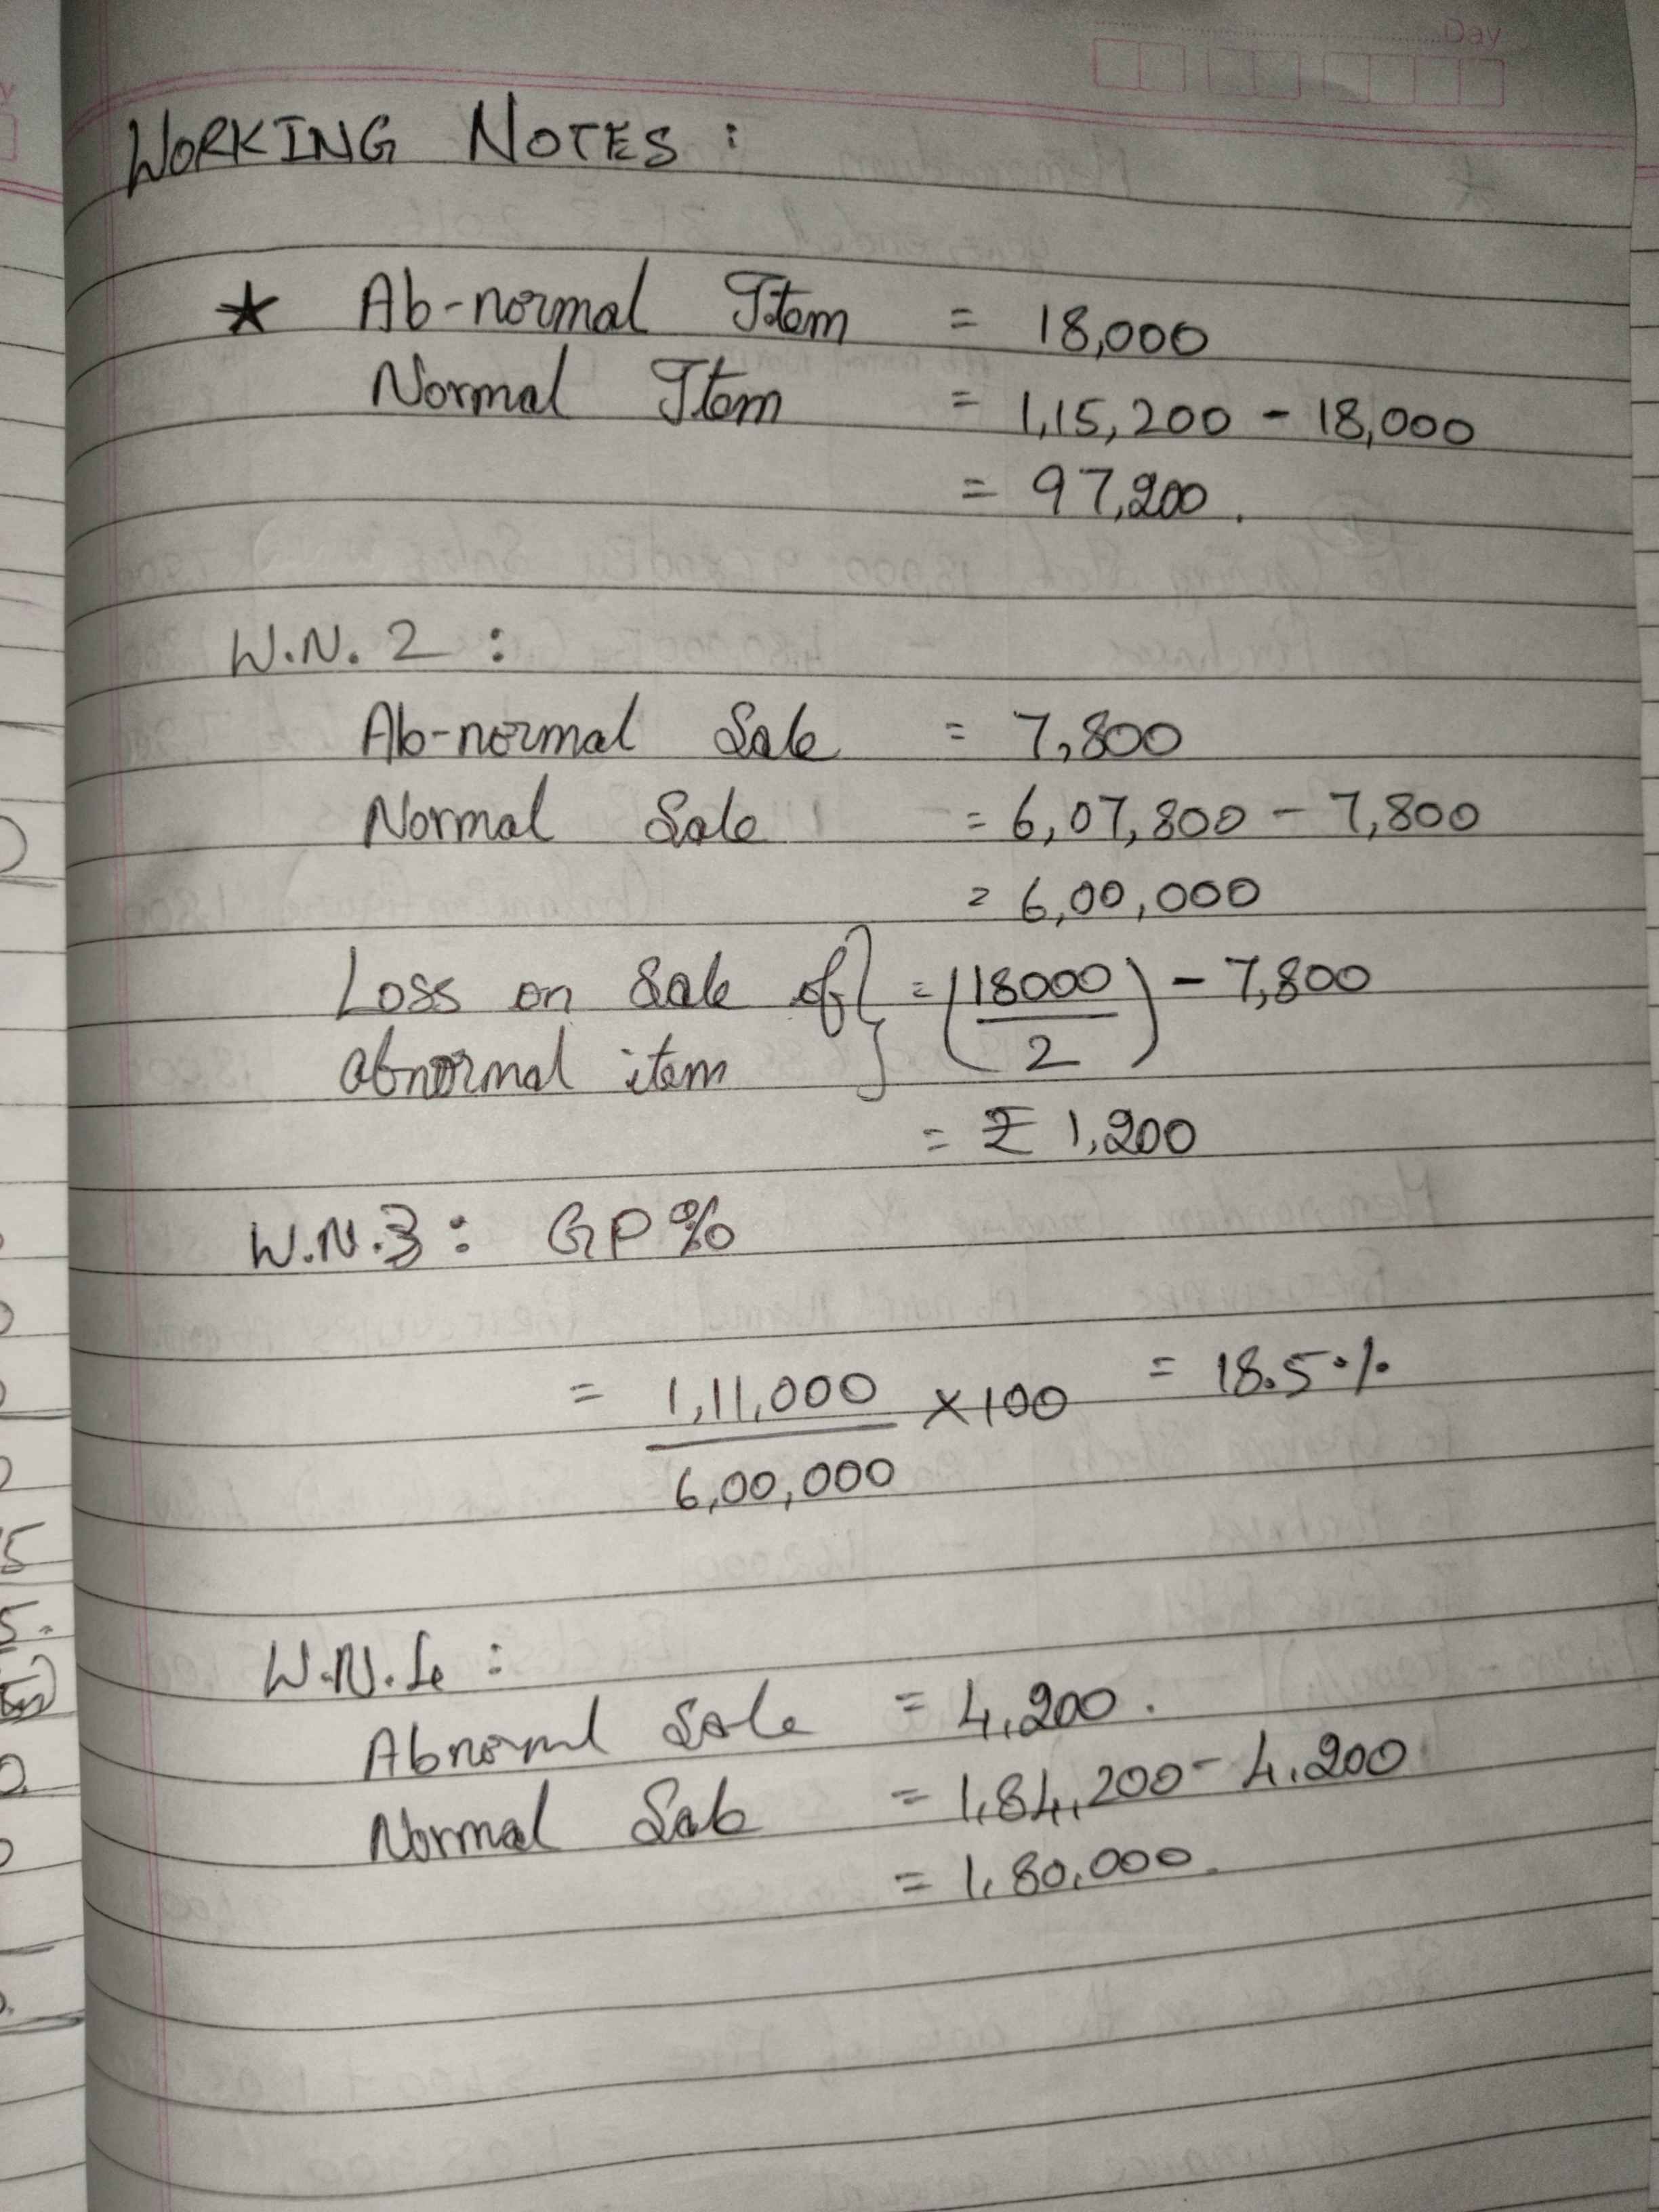 Day
WORKING NOTES :
* Ab-normal Item = 18,000
Normal Item = 1,15,200 - 18,000
= 97,200.
W.N. 2 :
Ab-normal Sale = 7,800
Normal Sale = 6,07,800 - 7,800
= 6,00,000
Loss on Sale of } = (18000/2) - 7,800
abnormal item
= ₹ 1,200
W.N.3 : GP %
= 1,11,000 / 6,00,000 × 100 = 18.5 %
W.N.4 :
Abnormal Sale = 4,200.
Normal Sale = 1,84,200 - 4,200
= 1,80,000.